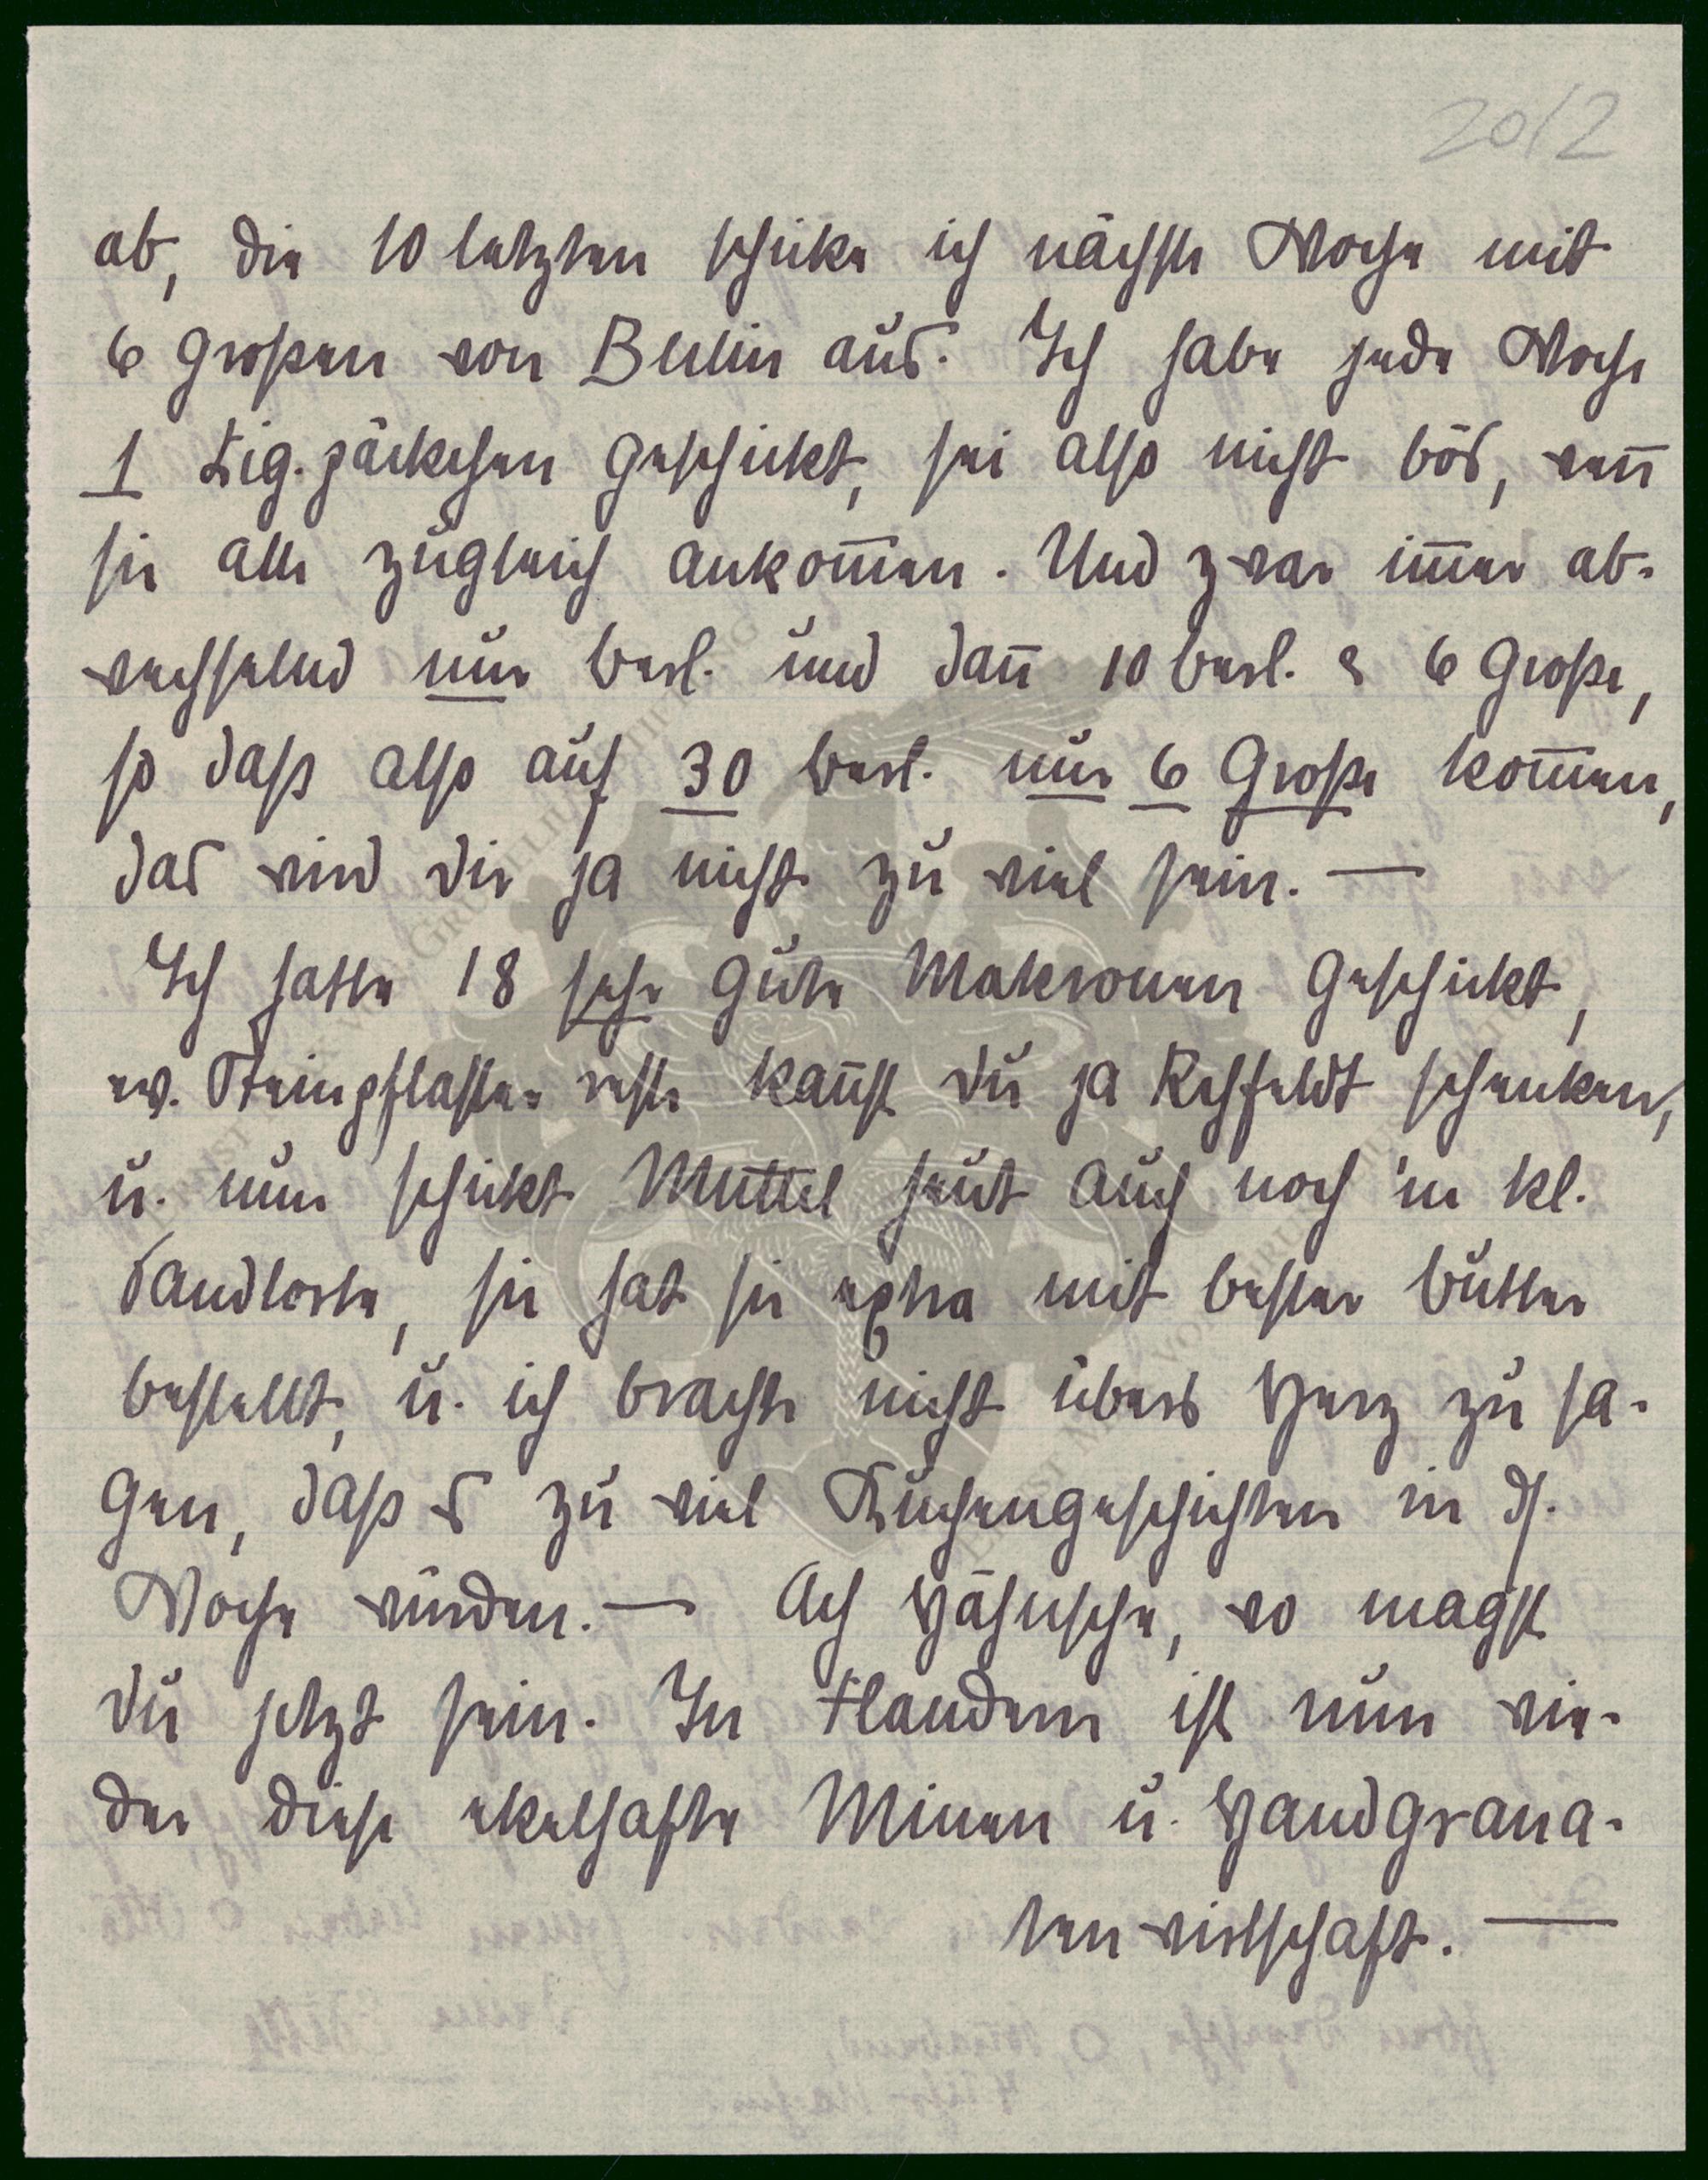 20/2
ab, die 10 letzten schicke ich nächste Woche mit
6 Großen von Berlin aus. Ich habe jede Woche
1 Zig. päckchen geschickt, sei also nicht bös, wen̄
sie alle zugleich ankom̄en. Und zwar im̄er ab-
wechselnd nur Berl. und dan̄ 10 Berl. & 6 Große,
so daß also auf 30 Berl. nur 6 Große kom̄en,
das wird dir ja nicht zu viel sein. —
Ich hatte 18 sehr gute Makronen geschickt,
ev. Steinpflaster reste kan̄st du ja Rehfeldt schenken,
u. nun schickt Muttel heut auch noch 'ne kl.
Sandtorte, sie hat sie extra mit bester Butter
bestellt, u. ich brachte nicht übers Herz zu sa-
gen, daß es zu viel Kuchengeschichten in ds.
Woche würden. — Ach Hähnsche, wo magst
du jetzt sein. In Flandern ist nun wie-
der diese ekelhafte Minen u. Handgrana-
ten wirtschaft. —